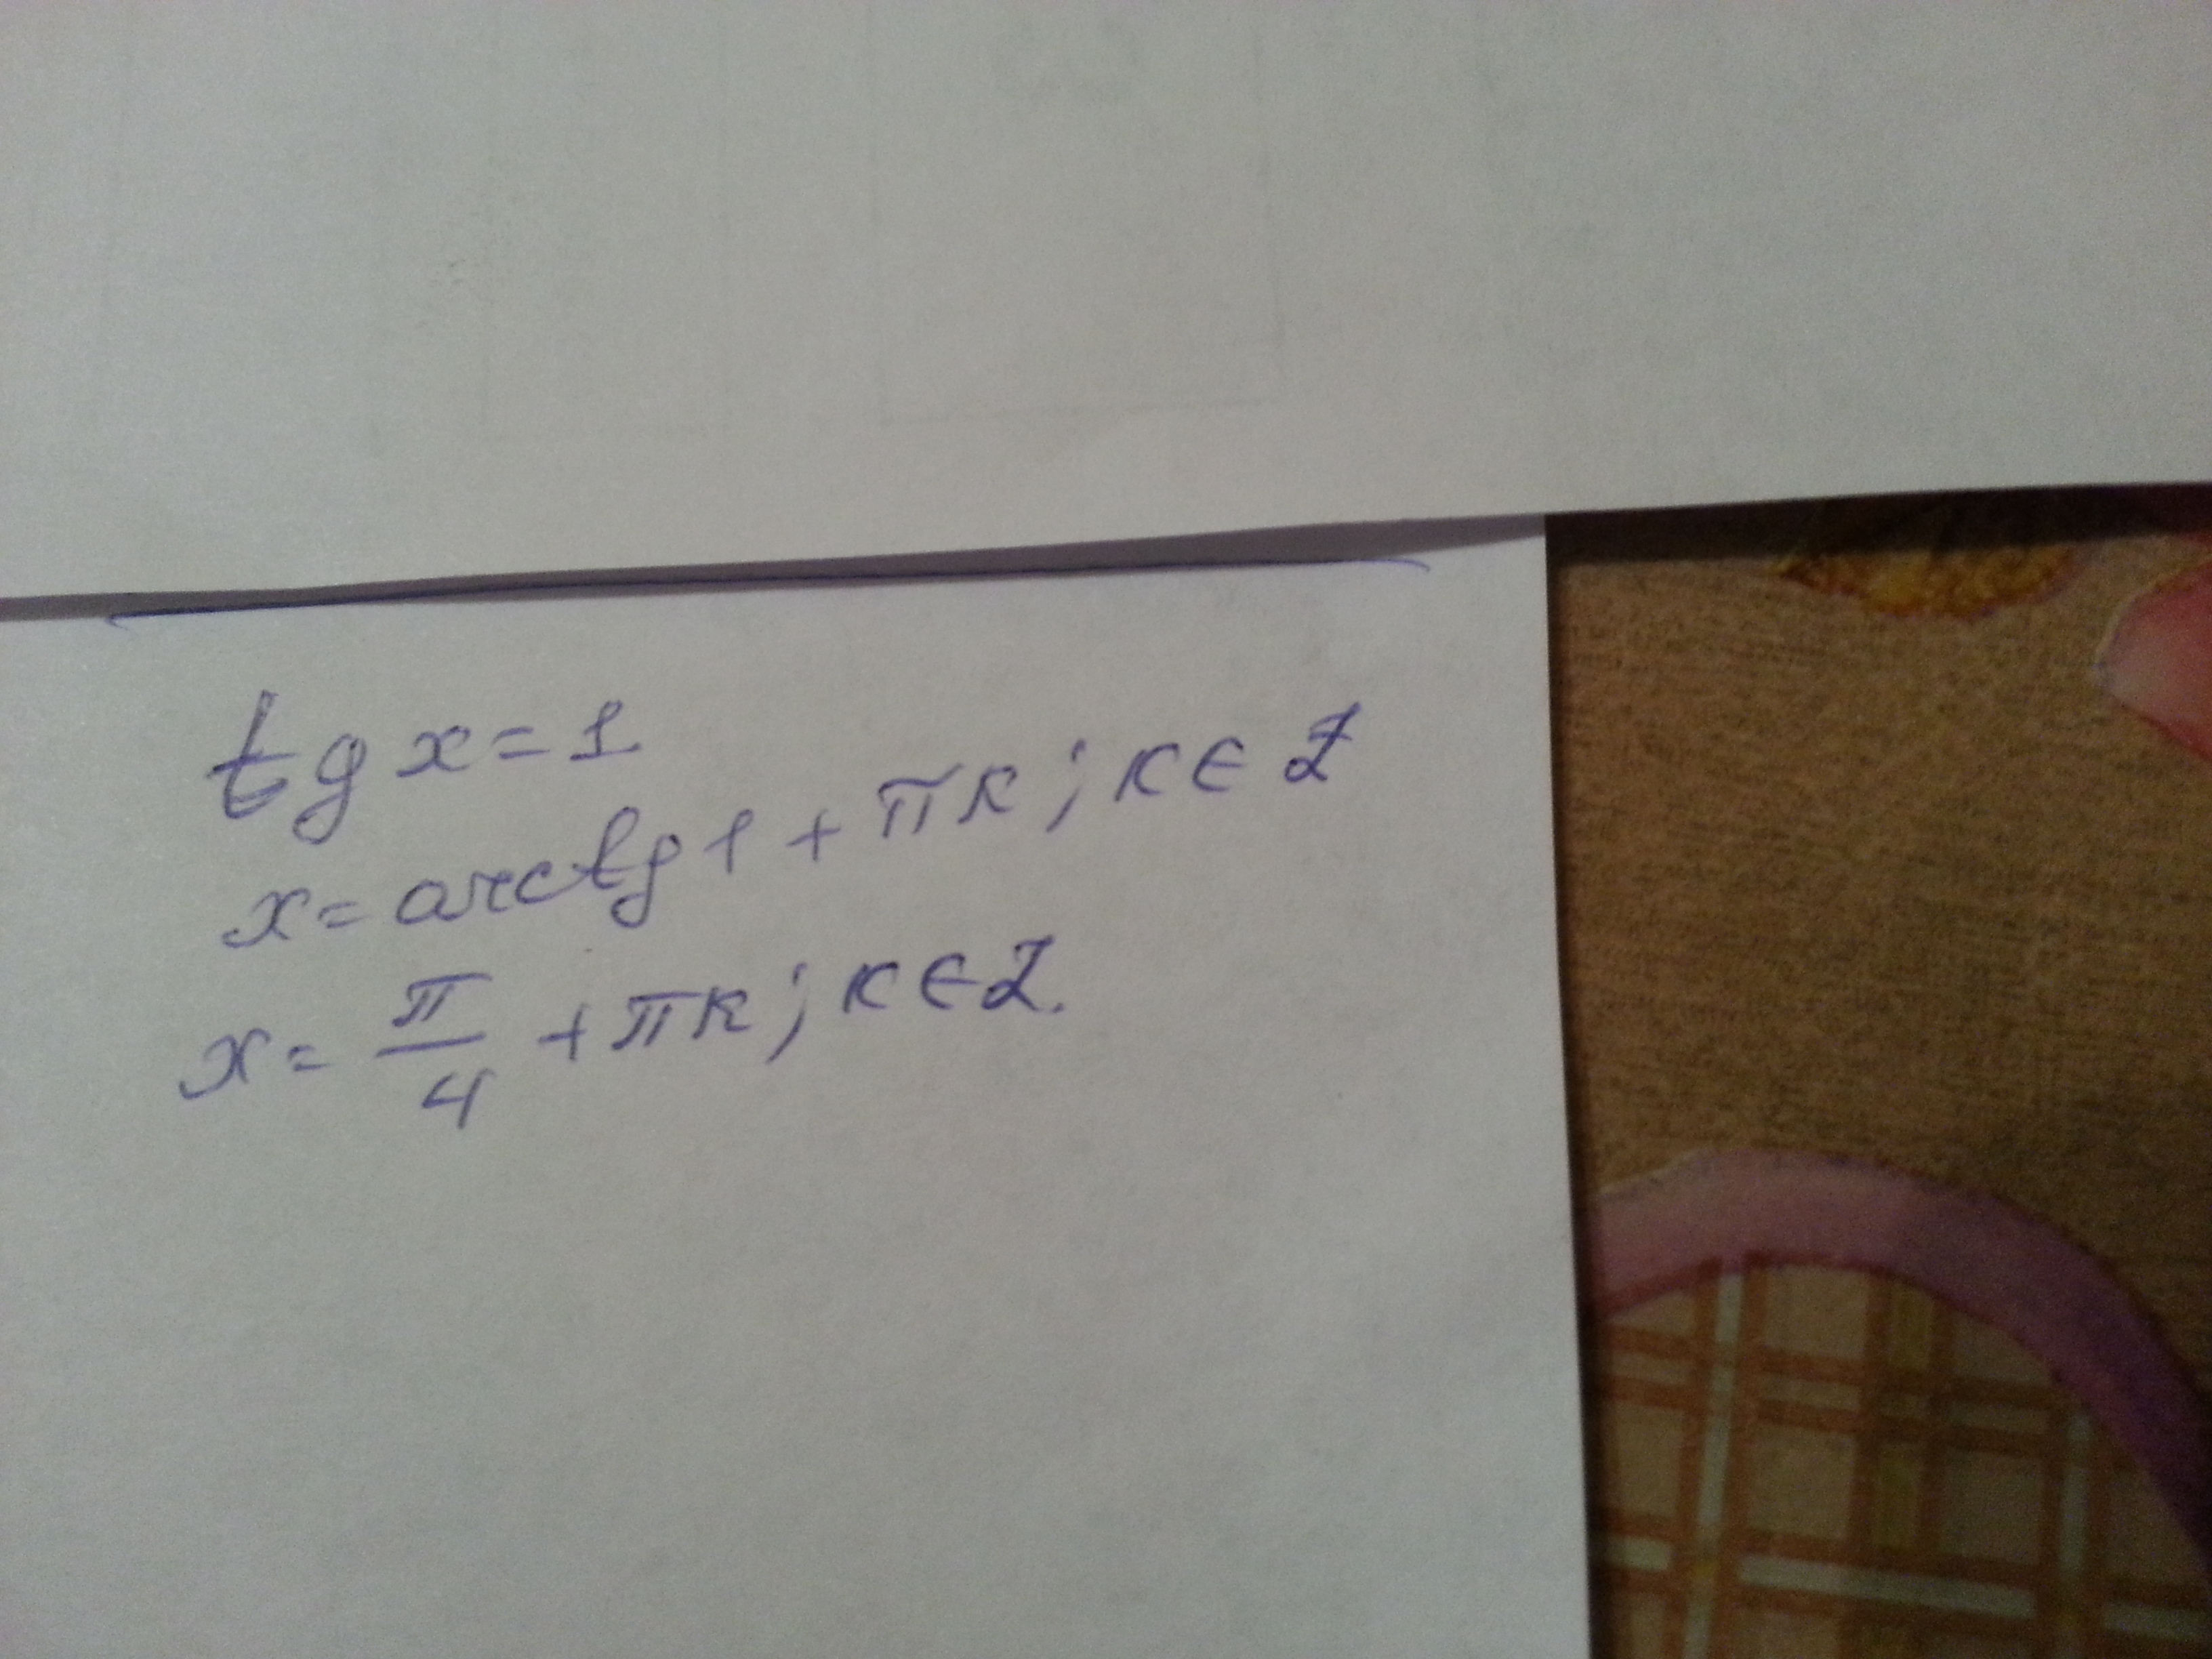 tg x = 1
x = arctg 1 + πк ; к ∈ Z
x = π/4 + πк ; к ∈ Z.